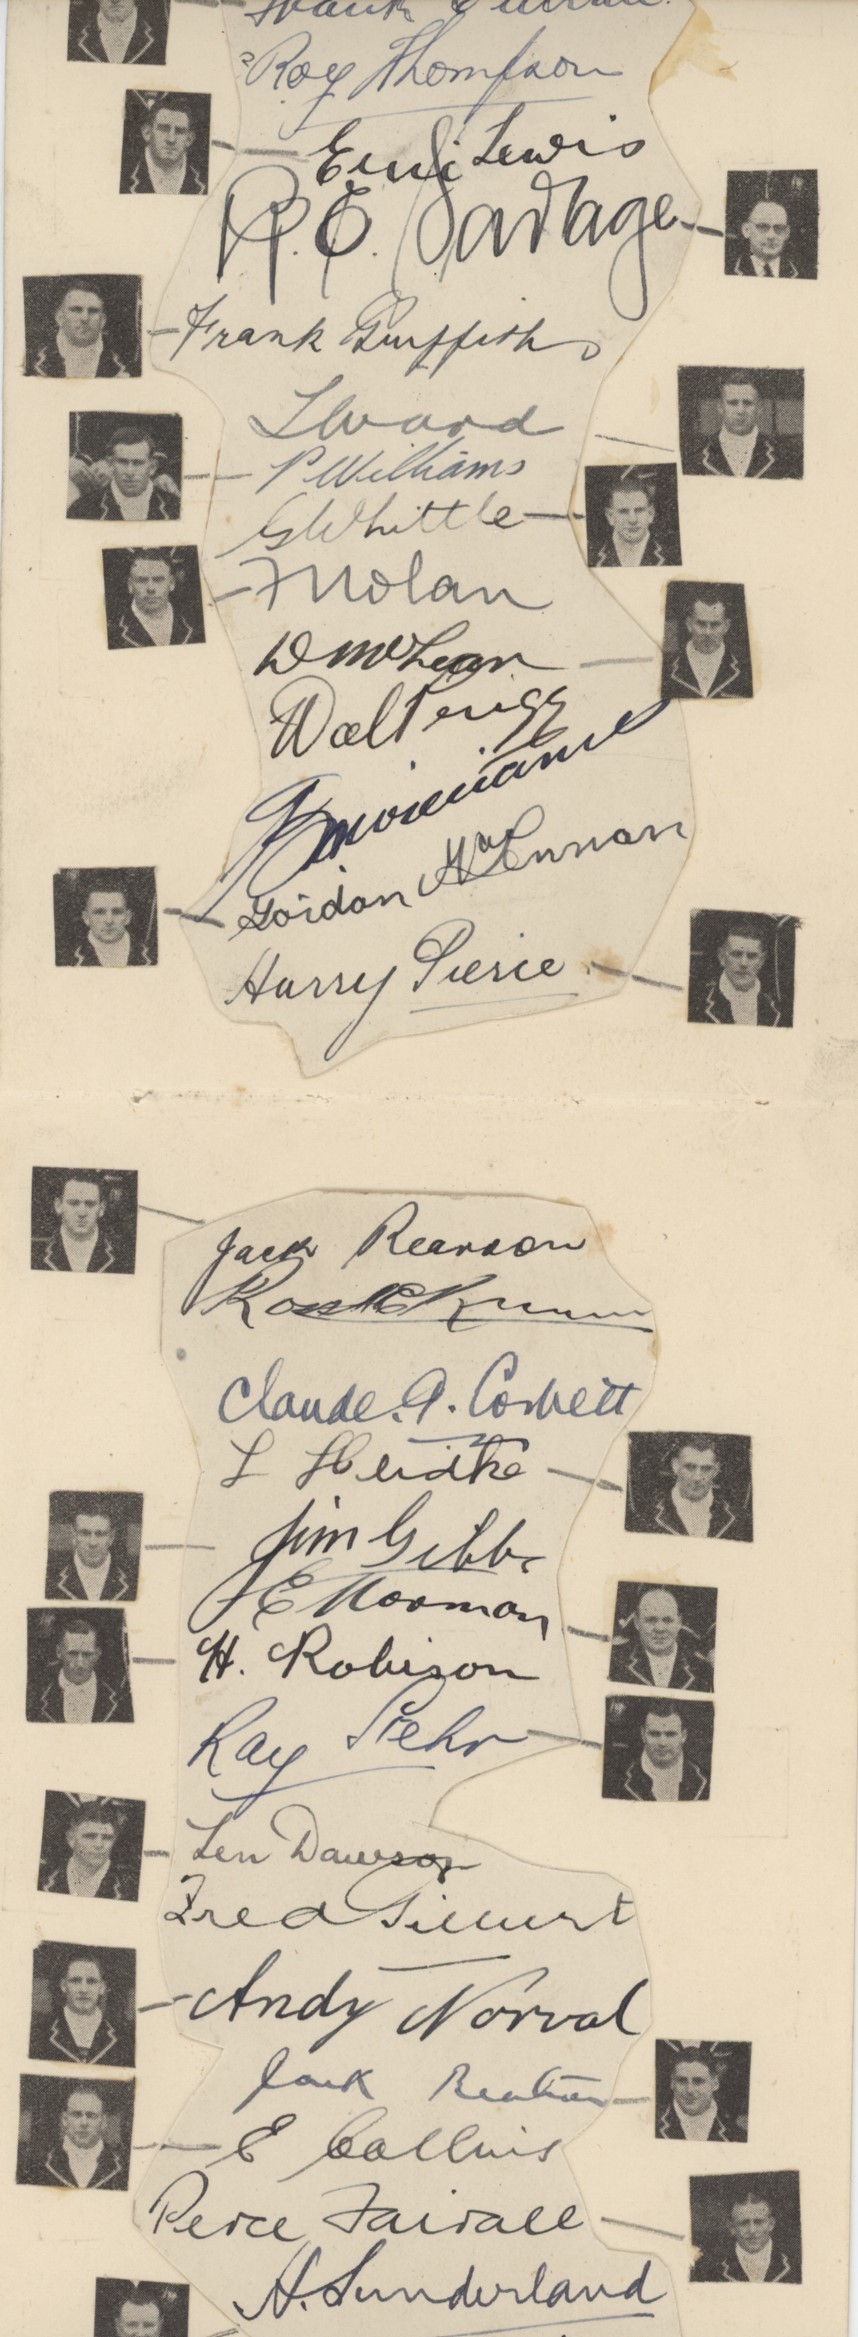 Frank Curran.
Roy Thompson
Emi Lewis
R. E. Savage
Frank Griffiths
L Ward
P Williams
G Whittle
F Nolan
D McLean
Walt Prigg
Gordon McLennan
Harry Pierce
Jack Pearson
Ross McKinnon
Claude. A. Corbett
L Heidke
Jim Gibbs
E Norman
H. Robison
Ray Stehr
Len Dawson
Fred Gilbert
Andy Norval
Jack Beaton
E Collins
Perce Fairall
H. Sunderland